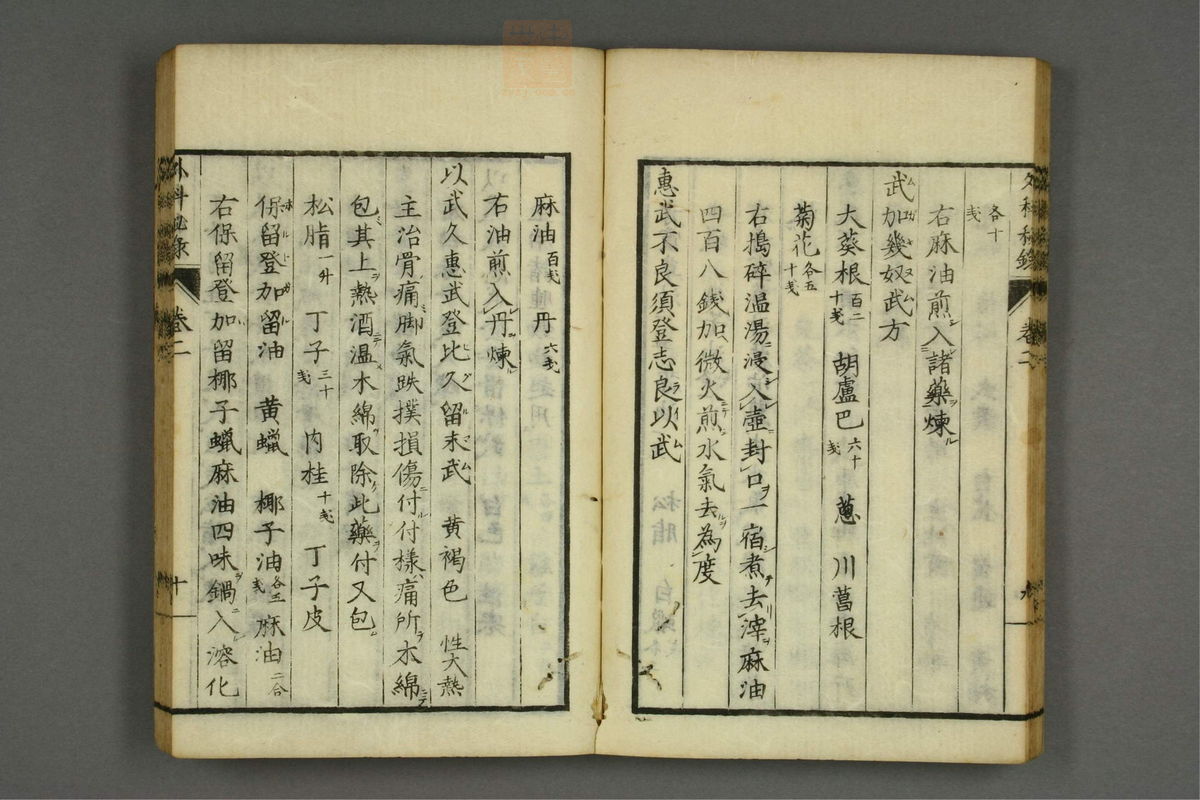 外科秘録 卷二 九
各十戔
右麻油煎入諸藥煉
武加幾奴武方
大葵根百二十戔 胡盧巴六十戔 蔥 川葛根
菊花各五十戔
右搗碎温湯浸入壺封口一宿煮去滓麻油
四百八錢加微火煎水氣去為度
惠武不良須登志良以武 松脂 白蠟
麻油百戔 丹六戔
右油煎入丹煉
以武久惠武登比久留末武 黄褐色 性大熱
主治骨痛脚氣跌撲損傷付付様痛所木綿
包其上熱酒温木綿取除此藥付又包
松脂一升 丁子三十戔 内桂十戔 丁子皮
保留登加留油 黄蠟 椰子油各五戔 麻油二合
右保留登加留椰子蠟麻油四味鍋入溶化
外科秘录 卷二 十